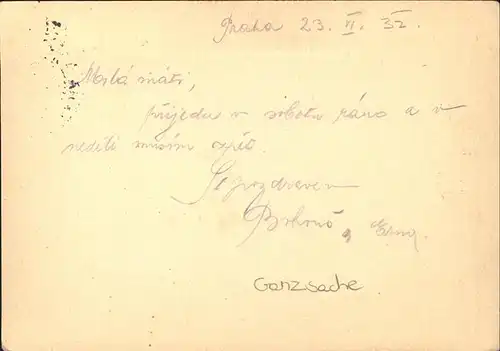 Praha 23. VI. 32.
Milá máti,
přijedu v sobotu ráno a v
neděli musím zpět.
S pozdravem
Erna.
Ganzsache